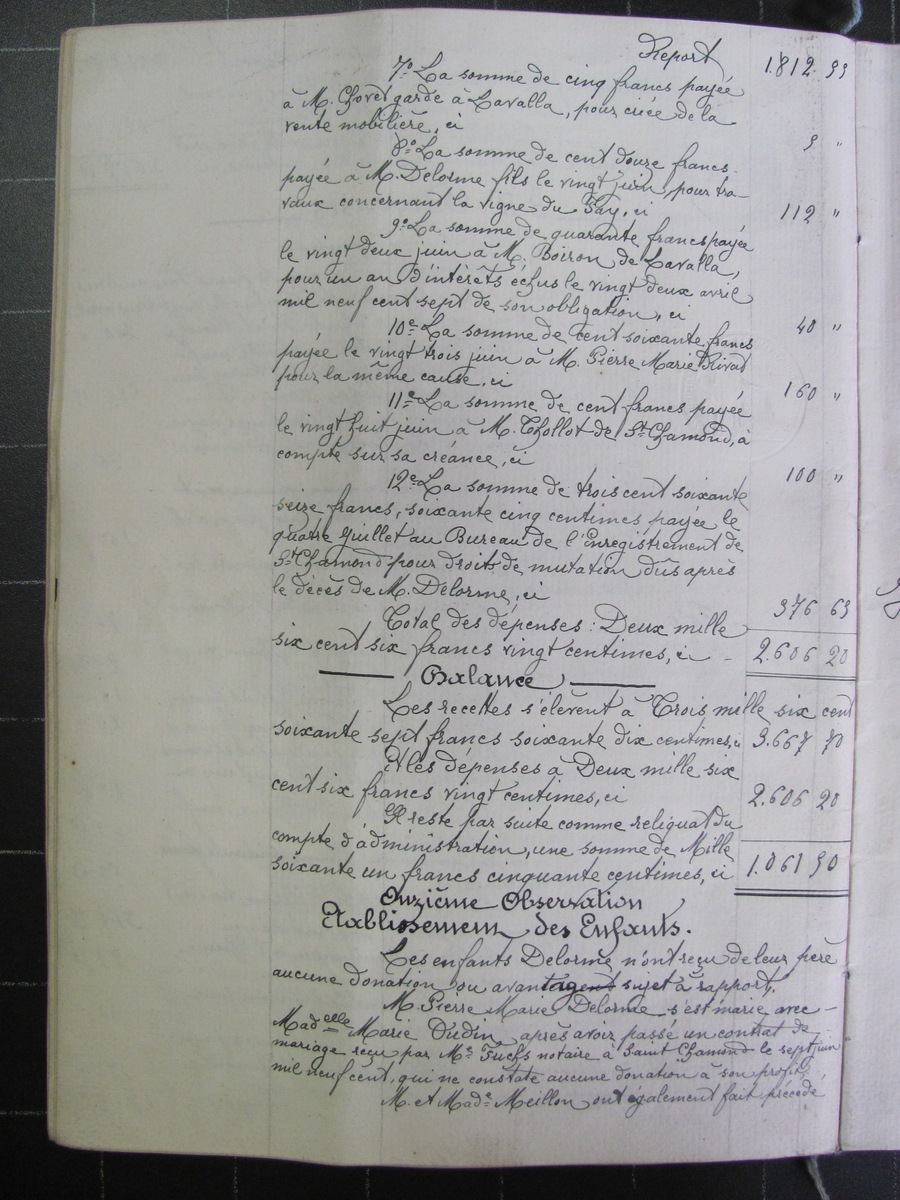 Report 1.812 55
7º La somme de cinq francs payée
à M. Chovet garde à Lavalla, pour criée de la
vente mobilière, ci 5 "
8º La somme de cent douze francs
payée à M. Delorme fils le vingt juin pour tra-
vaux concernant la vigne du Fay, ci 112 "
9º La somme de quarante francs payée
le vingt deux juin à M. Boiron de Lavalla,
pour un an d'intérêts échus le vingt deux avril
mil neuf cent sept de son obligation, ci 40 "
10º La somme de cent soixante francs
payée le vingt trois juin à M. Pierre Marie Rivat
pour la même cause, ci 160 "
11º La somme de cent francs payée
le vingt huit juin à M. Thollot de St Chamond, à
compte sur sa créance, ci 100 "
12º La somme de trois cent soixante
seize francs, soixante cinq centimes payée le
quatre Juillet au Bureau de l'Enregistrement de
St Chamond pour droits de mutation dûs après
le décès de M. Delorme, ci 376 65
Total des dépenses : Deux mille
six cent six francs vingt centimes, ci - 2.606 20
Balance
Les recettes s'élèvent à Trois mille six cent
soixante sept francs soixante dix centimes, ci 3.667 70
Et les dépenses à Deux mille six
cent six francs vingt centimes, ci 2.606 20
Il reste par suite comme reliquat du
compte d'administration, une somme de Mille
soixante un francs cinquante centimes, ci 1.061 50
Onzième Observation
Etablissement des Enfants.
Les enfants Delorme n'ont reçu de leur père
aucune donation ou avantagent sujet à rapport.
M. Pierre Marie Delorme s'est marié avec
Madelle Marie Oudin, après avoir passé un contrat de
mariage reçu par Me Fuchs notaire à Saint Chamond le sept juin
mil neuf cent, qui ne constate aucune donation à son profit.
M. et Made Meillon ont également fait précédé